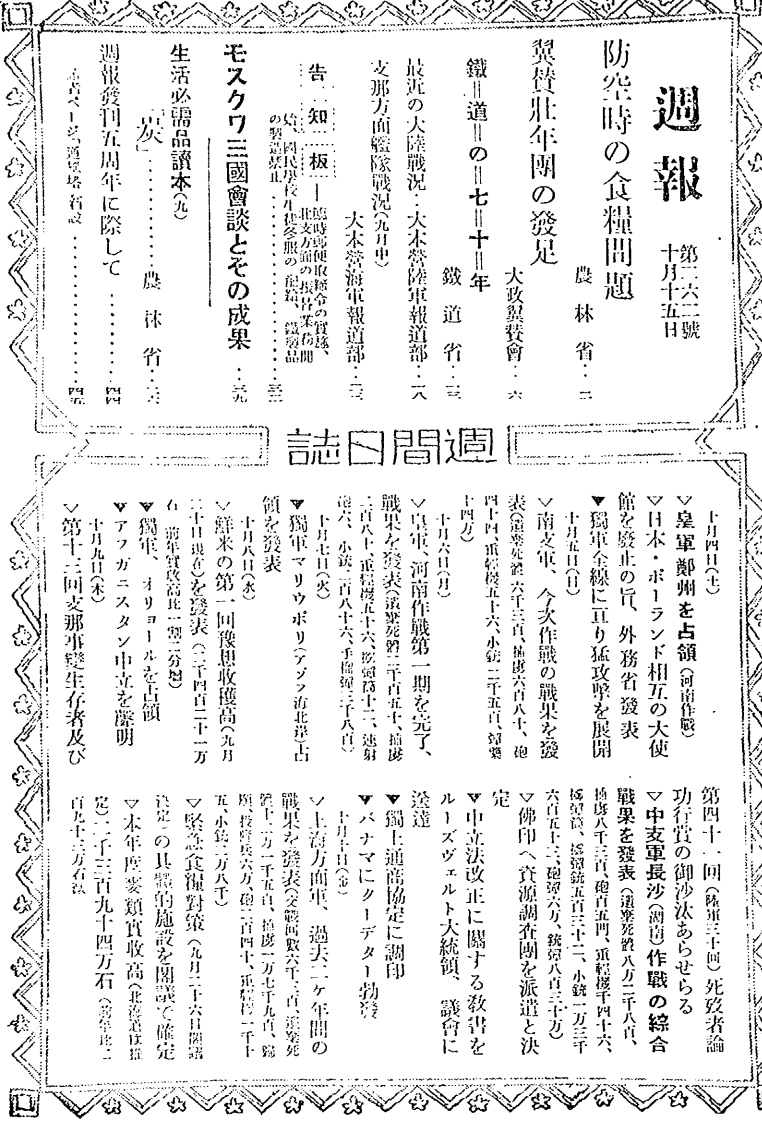 週報
第二六二號
十月十五日
防空時の食糧問題
農林省‥二
翼贊壯年團の發足
大政翼贊會‥六
鐵=道=の=七=十=年
鐵道省‥一三
最近の大陸戰況‥大本營陸軍報道部‥一八
支那方面艦隊戰況(九月中)
大本營海軍報道部‥二三
告知板―
臨時郵便取締令の實施、
北支方面の振替業務開
始、國民學校生徒冬服の配給、鐵製品
の製造禁止
モスクワ三國會談とその成果‥二九
生活必需品讀本(九)
「炭」‥‥‥‥農林省‥
週報發刊五周年に際して‥‥‥‥四四
讀者ページ「通風塔」新設‥‥‥‥四五
週間日誌
十月四日(土)
▽皇軍鄭州を占領(河南作戰)
▽日本・ポーランド相互の大使
館を廢止の旨、外務省發表
▼獨軍全線に亘り猛攻擊を展開
十月五日(日)
▽南支軍、今次作戰の戰果を發
表(遺棄死體六千三百、捕虜六百八十、砲
四十四、重輕機五十六、小銃二千五百、彈藥
十四万)
十月六日(月)
▽皇軍、河南作戰第一期を完了、
戰果を發表(遺棄死體二千百五十、捕虜
二百八十、重輕機五十六、擲彈筒十二、速射
砲六、小銃二百八十六、手榴彈三千八百)
十月七日(火)
▼獨軍マリウポリ(アゾフ海北岸)占
領を發表
十月八日(水)
▽鮮米の第一回豫想收穫高(九月
二十日現在)を發表(二千四百二十一万
石 前年實收高比一割二分增)
▼獨軍、オリョールを占領
▼アフガニスタン中立を聲明
十月九日(木)
▽第十三回支那事變生存者及び
第四十一回(陸軍三十回)死歿者論
功行賞の御沙汰あらせらる
▽中支軍長沙(湖南)作戰の綜合
戰果を發表(遺棄死體八万二千八百、
捕虜八千三百、砲百五門、重輕機千四十六、
擲彈筒、擲彈銃五百三十二、小銃一万三千
六百五十三、砲彈六万、銃彈八百三十万)
▽佛印へ資源調查團を派遣と決
定
▼中立法改正に關する敎書を
ルーズヴェルト大統領、議會に
送達
▼獨土通商協定に調印
▼パナマにクーデター勃發
十月十日(金)
▽上海方面軍、過去二ケ年間の
戰果を發表(交戰回數六千二百、遺棄死
體十二万一千五百、捕虜一万七千九百、歸
順、投降兵六万、砲二百四十、重輕機一千十
五、小銃二万八千)
▽緊急食糧對策(九月二十六日閣議
決定)の具體的施設を閣議で確定
▽本年度麥類實收高(北海道は推
定)二千三百九十四万石(前年比二
百九十三万石減